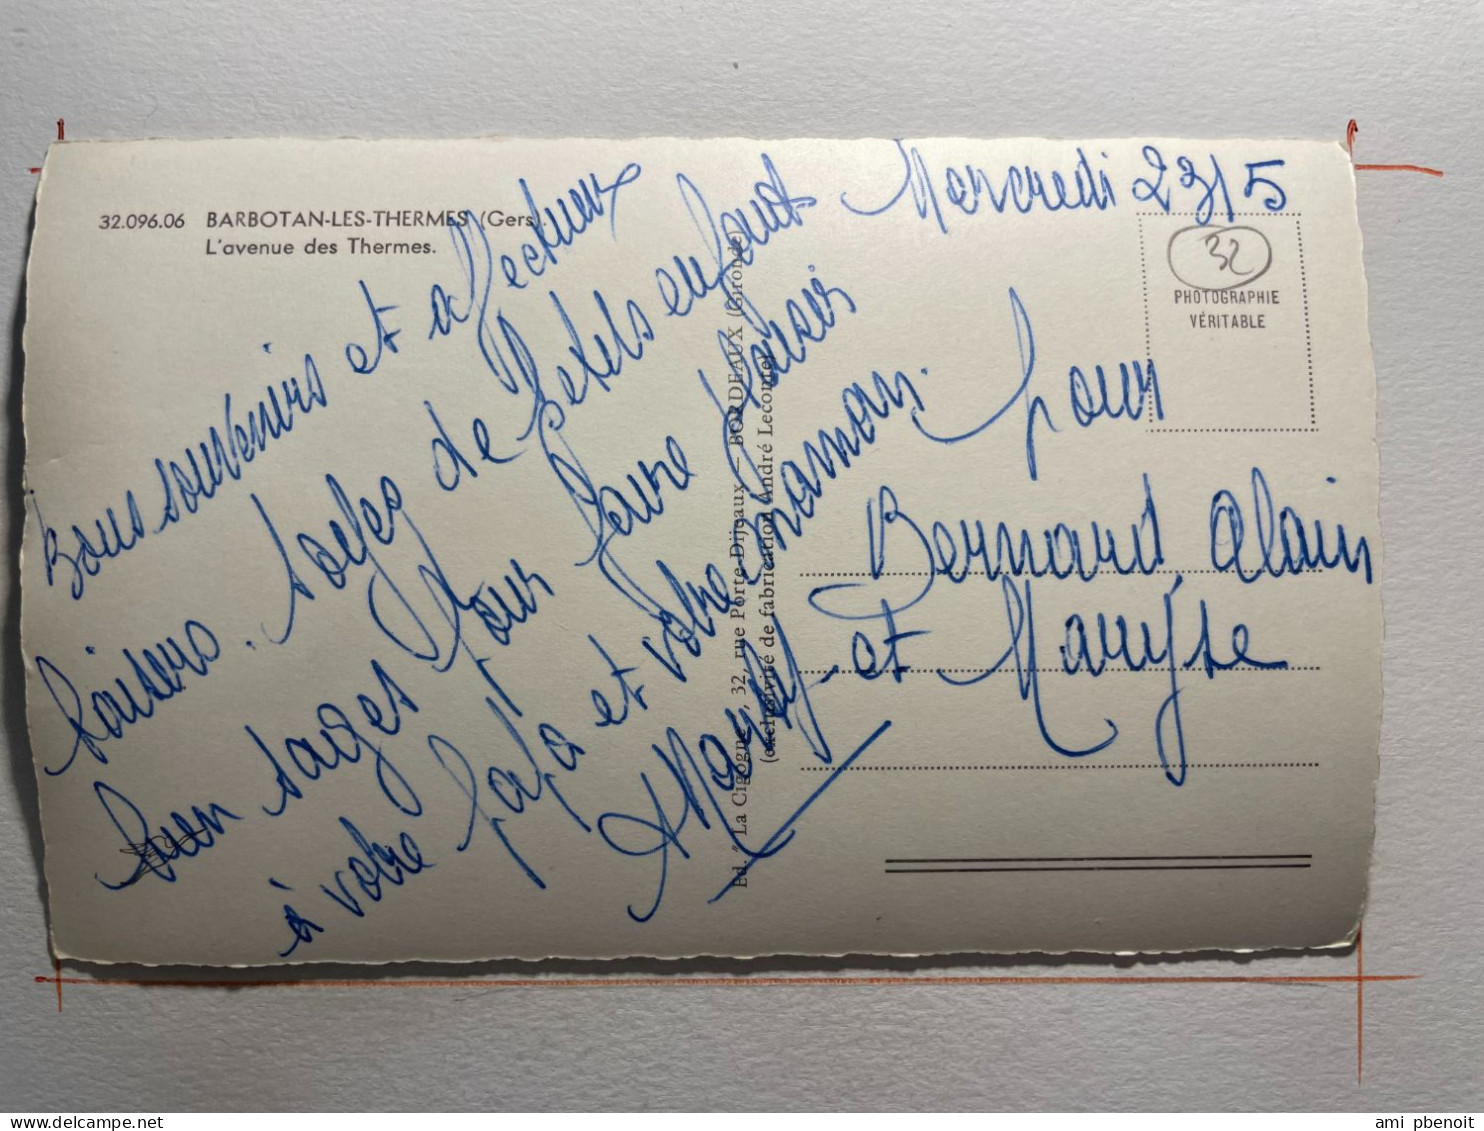 32.096.06 BARBOTAN-LES-THERMES (Gers).
L'avenue des Thermes.
Mercredi 23/5
32
PHOTOGRAPHIE
VÉRITABLE
Bons souvenirs et affectueux
baisers. Soyez de petits enfants
bien sages pour faire plaisir
à votre papa et votre maman.
pour
Bernard, Alain
et Maryse
Ed. "La Cigogne", 32, rue Porte-Dijeaux — BORDEAUX (Gironde)
(exclusivité de fabrication André Lecomte)
ami pbenoit